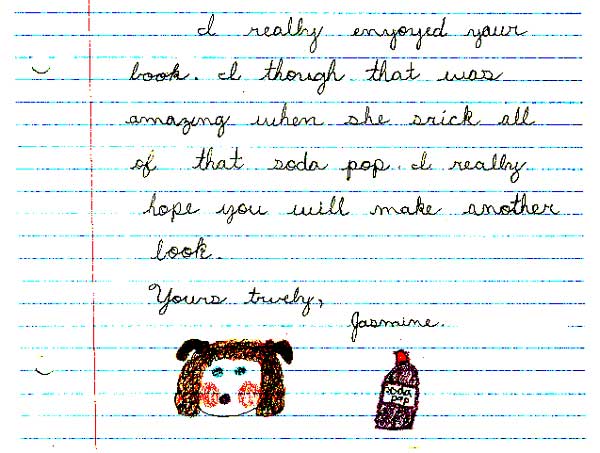 I really enyoyed your
book. I though that was
amazing when she srick all
of that soda pop. I really
hope you will make another
book.
Yours truely,
Jasmine.
soda
pop